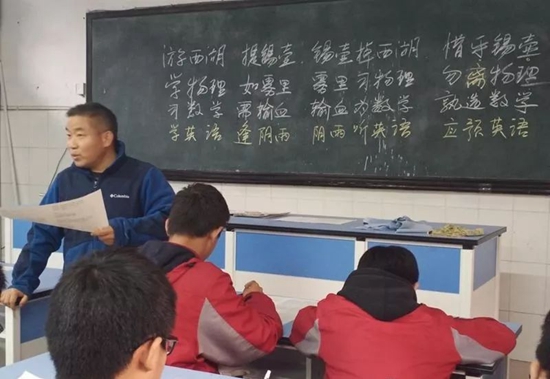 游西湖 提锡壶 锡壶掉西湖 惜乎锡壶
学物理 如雾里 雾里习物理 勿离物理
习数学 需输血 输血为数学 孰造数学
学英语 逢阴雨 阴雨听英语 应预英语
Columbia